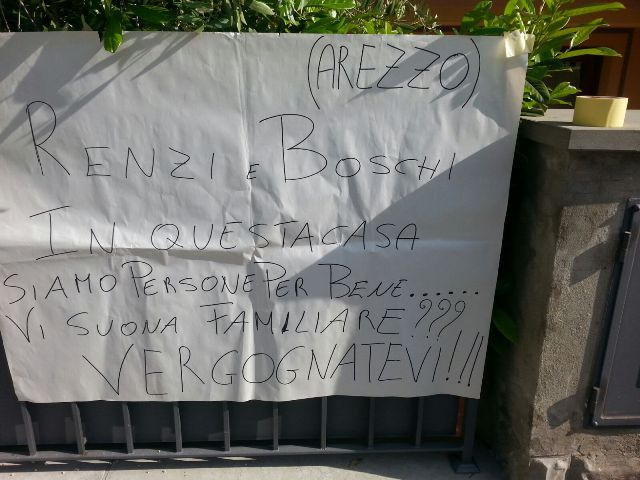 (AREZZO)
RENZI E BOSCHI
IN QUESTA CASA
SIAMO PERSONE PER BENE......
VI SUONA FAMILIARE???
VERGOGNATEVI!!!!